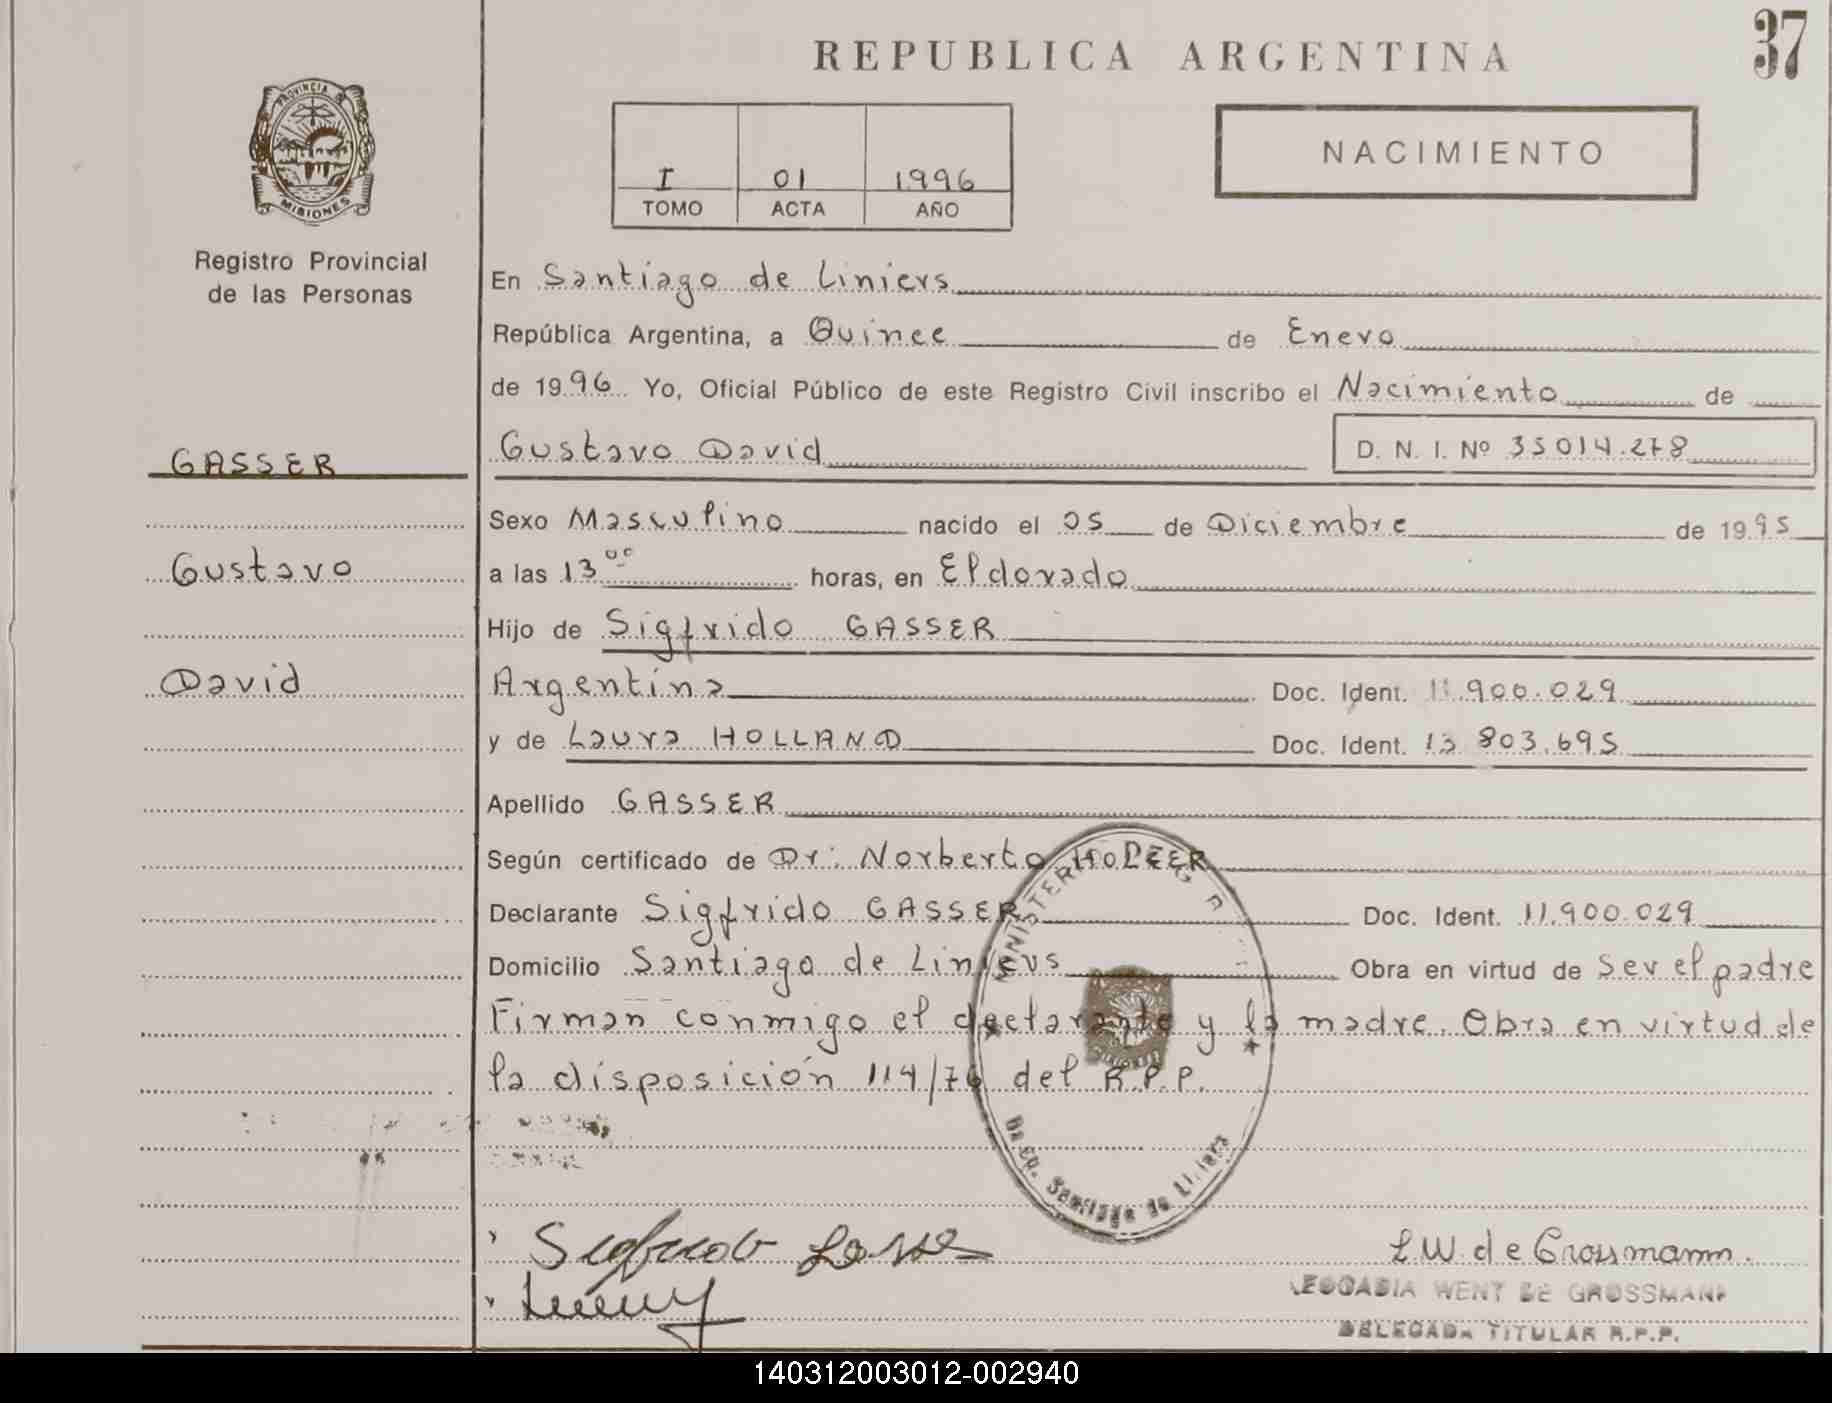 37
REPUBLICA ARGENTINA
PROVINCIA
MISIONES
I 01 1996
TOMO ACTA AÑO
NACIMIENTO
Registro Provincial
de las Personas
En Santiago de Liniers
República Argentina, a Quince de Enero
de 1996 Yo, Oficial Público de este Registro Civil inscribo el Nacimiento de
GASSER
Gustavo David D. N. I. Nº 35014.278
Sexo Masculino nacido el 05 de Diciembre de 1995
Gustavo
a las 13 00 horas, en Eldorado
Hijo de Sigfrido GASSER
David
Argentina Doc. Ident. 11.900.029
y de Laura HOLLAND Doc. Ident. 13 803.695
Apellido GASSER
Según certificado de Dr. Norberto
Declarante Sigfrido GASSER Doc. Ident. 11.900.029
Domicilio Santiago de Liniers Obra en virtud de Ser el padre
Firman conmigo el declarante y la madre. Obra en virtud de
la disposición 114/76 del R.P.P.
Santiago de Liniers
L.W. de Grossmann.
LEOCADIA WENT DE GROSSMANN
DELEGADA TITULAR R.P.P.
140312003012-002940